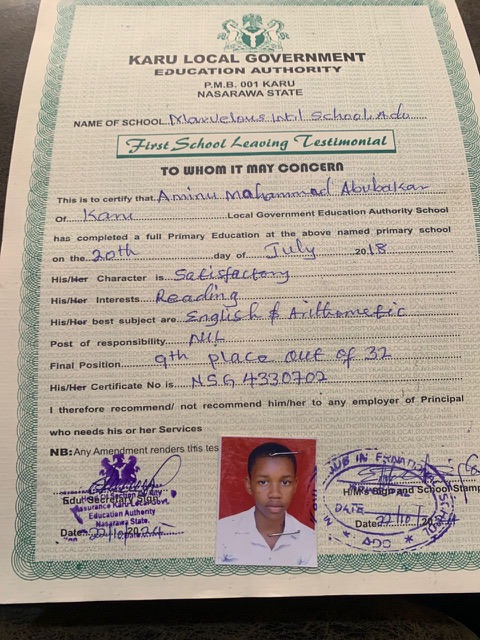 KARU LOCAL GOVERNMENT
EDUCATION AUTHORITY
P.M.B. 001 KARU
NASARAWA STATE
NAME OF SCHOOL Marvelous Int'l School, Ado
First School Leaving Testimonial
TO WHOM IT MAY CONCERN
This is to certify that Aminu Mahammad Abubakar
Of Karu Local Government Education Authority School
has completed a full Primary Education at the above named primary school
on the 20th day of July 2018
His/Her Character is Satisfactory
His/Her Interests Reading
His/Her best subject are English & Arithemetic
Post of responsibility NIL
Final Position 9th place out of 32
His/Her Certificate No is NSG 4330702
I therefore recommend/ not recommend him/her to any employer of Principal
who needs his or her Services
NB: Any Amendment renders this tes
Edu. Secretary Sign
Assurance
Education Authority
Nasarawa State.
Date
H/M's Sign and School Stamp
DATE
Date
ADO